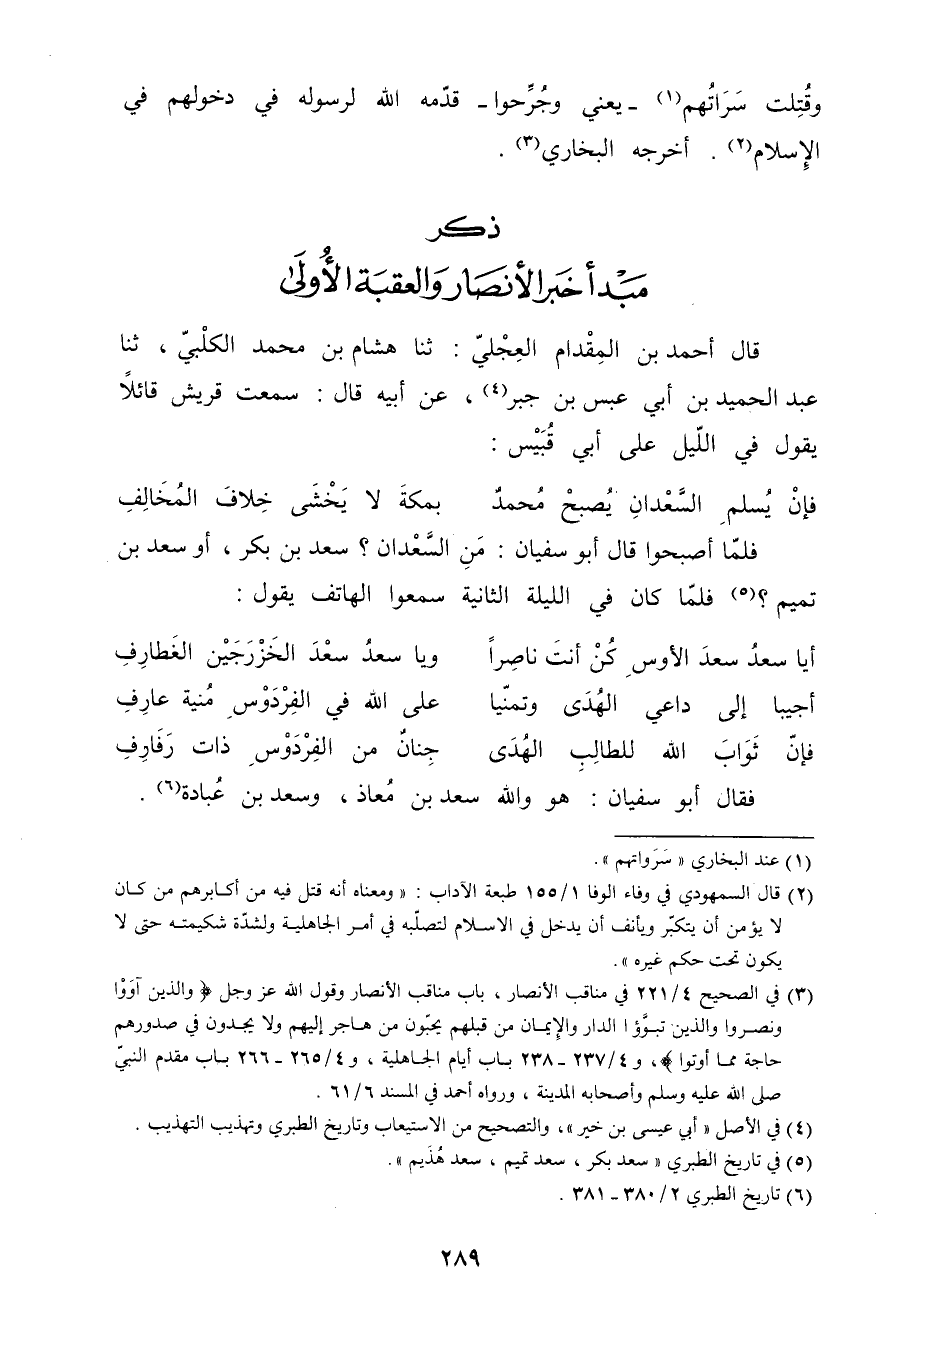 وقُتِلت سَرَاتُهم(١) ـ يعني وجُرِّحوا ـ قدّمه الله لرسوله في دخولهم في
الإِسلام(٢) . أخرجه البخاري(٣) .
ذكر
مَبْدأ خبَر الأنصَار وَالعقبَة الأُولَىٰ
قال أحمد بن المِقْدام العِجْليّ : ثنا هشام بن محمد الكلْبيّ ، ثنا
عبد الحميد بن أبي عبس بن جبر(٤) ، عن أبيه قال : سمعت قريش قائلاً
يقول في اللّيل على أبي قُبَيْس :
فإنْ يُسلمِ السَّعْدانِ يُصبحْ مُحمدٌ بمكةَ لا يَخْشَى خِلافَ المُخَالِفِ
فلمّا أصبحوا قال أبو سفيان : مَنِ السَّعْدان ؟ سعد بن بكر ، أو سعد بن
تميم ؟(٥) فلمّا كان في الليلة الثانية سمعوا الهاتف يقول :
أيا سعدُ سعدَ الأوسِ كُنْ أنتَ ناصِراً ويا سعدُ سعْدَ الخَزْرَجَيْن الغَطارِفِ
أجيبا إلى داعي الهُدَى وتمنّيا على الله في الفِرْدَوْسِ مُنية عارِفِ
فإنّ ثَوَابَ الله للطالِبِ الهُدَى جِنانٌ من الفِرْدَوْسِ ذات رَفَارِفِ
فقال أبو سفيان : هو والله سعد بن مُعاذ ، وسعد بن عُبادة(٦) .
(١) عند البخاري « سَرَواتهم » .
(٢) قال السمهودي في وفاء الوفا ١/١٥٥ طبعة الآداب : « ومعناه أنه قتل فيه من أكابرهم من كان
لا يؤمن أن يتكبّر ويأنف أن يدخل في الاسلام لتصلّبه في أمر الجاهلية ولشدّة شكيمته حتى لا
يكون تحت حكم غيره » .
(٣) في الصحيح ٤/٢٢١ في مناقب الأنصار ، باب مناقب الأنصار وقول الله عز وجل ﴿ والذين آوَوْا
ونصروا والذين تبوَّؤا الدار والإِيمان من قبلهم يحبّون من هاجر إليهم ولا يجدون في صدورهم
حاجة مما أوتوا ﴾، و ٤/٢٣٧ ـ ٢٣٨ باب أيام الجاهلية ، و ٤/٢٦٥ ـ ٢٦٦ باب مقدم النبيّ
صلى الله عليه وسلم وأصحابه المدينة ، ورواه أحمد في المسند ٦/٦١ .
(٤) في الأصل « أبي عيسى بن خير »، والتصحيح من الاستيعاب وتاريخ الطبري وتهذيب التهذيب .
(٥) في تاريخ الطبري « سعد بكر ، سعد تميم ، سعد هُذَيم » .
(٦) تاريخ الطبري ٢/٣٨٠ ـ ٣٨١ .
٢٨٩